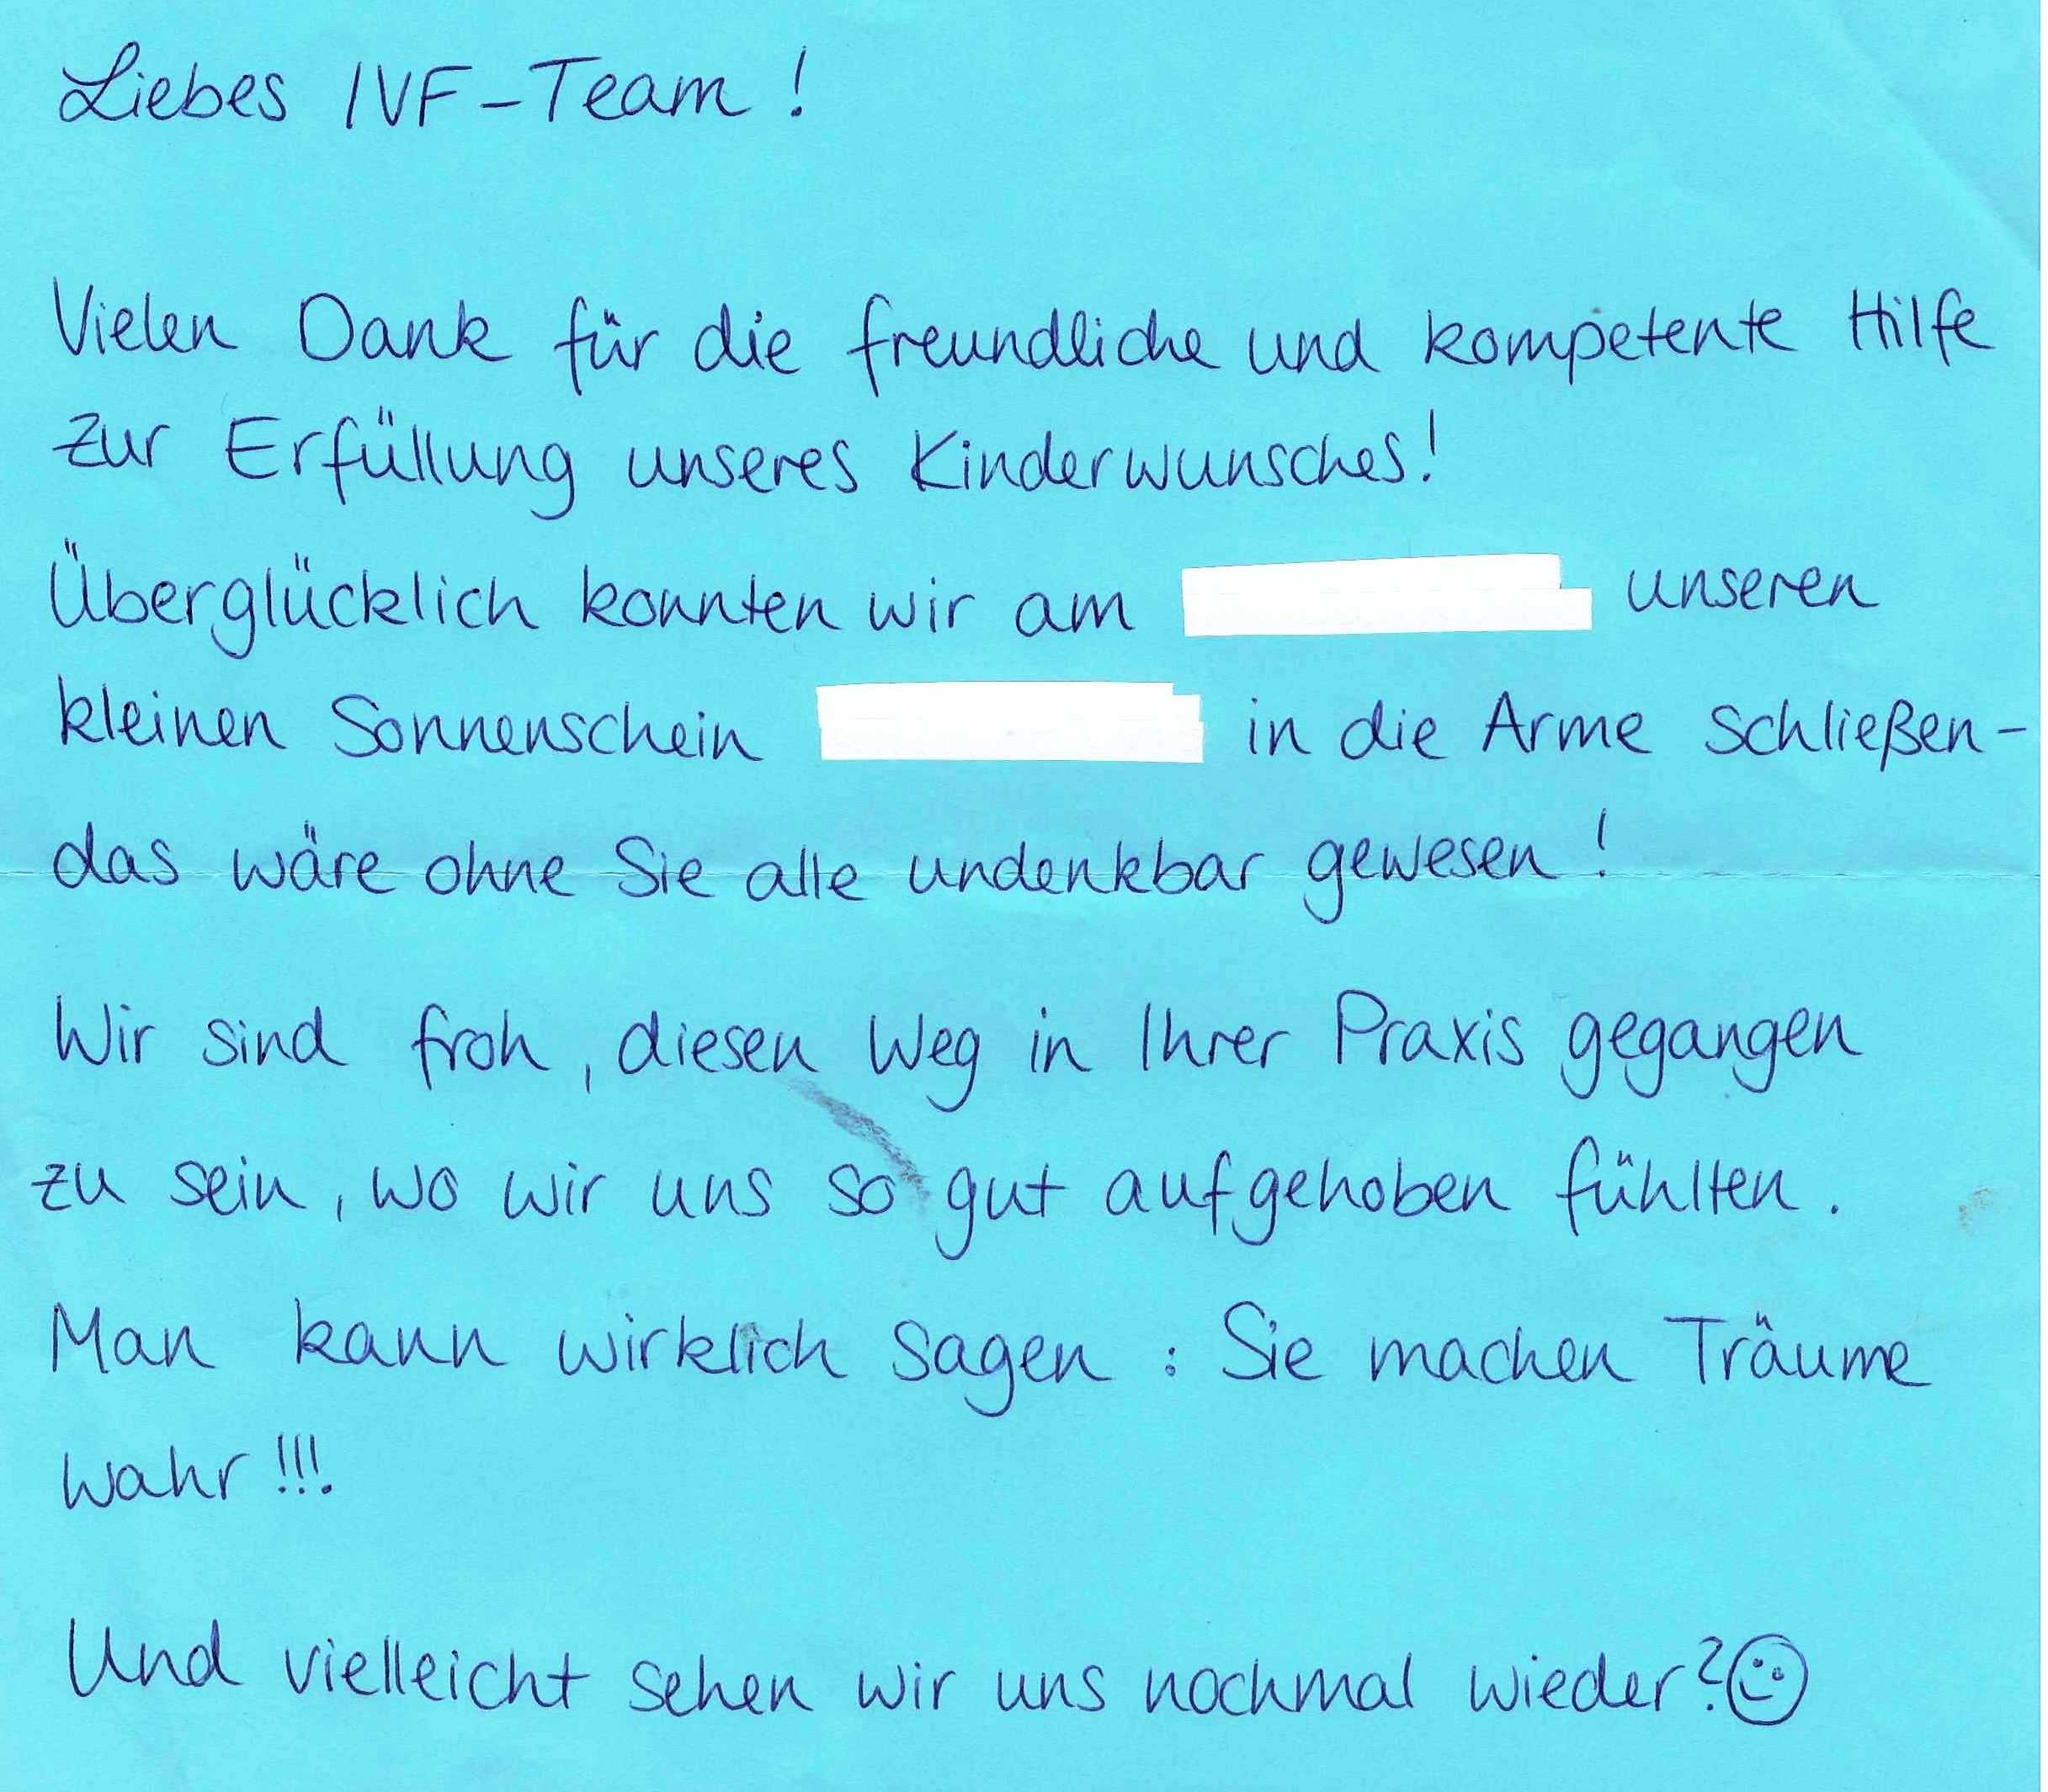 Liebes IVF-Team!
Vielen Dank für die freundliche und kompetente Hilfe
zur Erfüllung unseres Kinderwunsches!
Überglücklich konnten wir am unseren
kleinen Sonnenschein in die Arme schließen-
das wäre ohne Sie alle undenkbar gewesen!
Wir sind froh, diesen Weg in Ihrer Praxis gegangen
zu sein, wo wir uns so gut aufgehoben fühlten.
Man kann wirklich sagen: Sie machen Träume
wahr!!!
Und vielleicht sehen wir uns nochmal wieder?☺